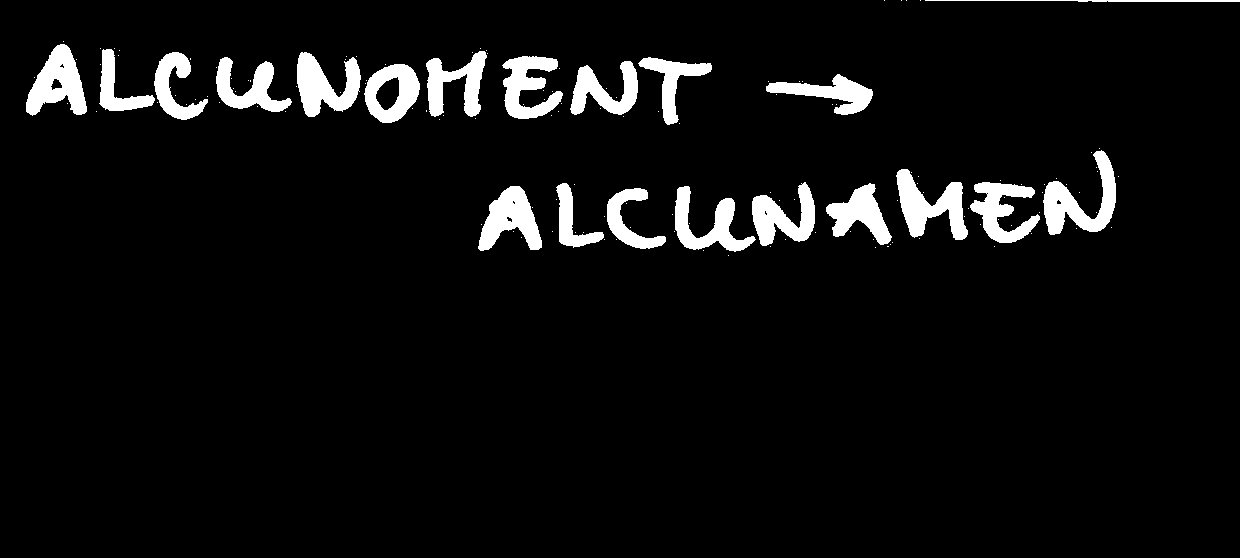 ALCUNOMENT →
ALCUNAMEN